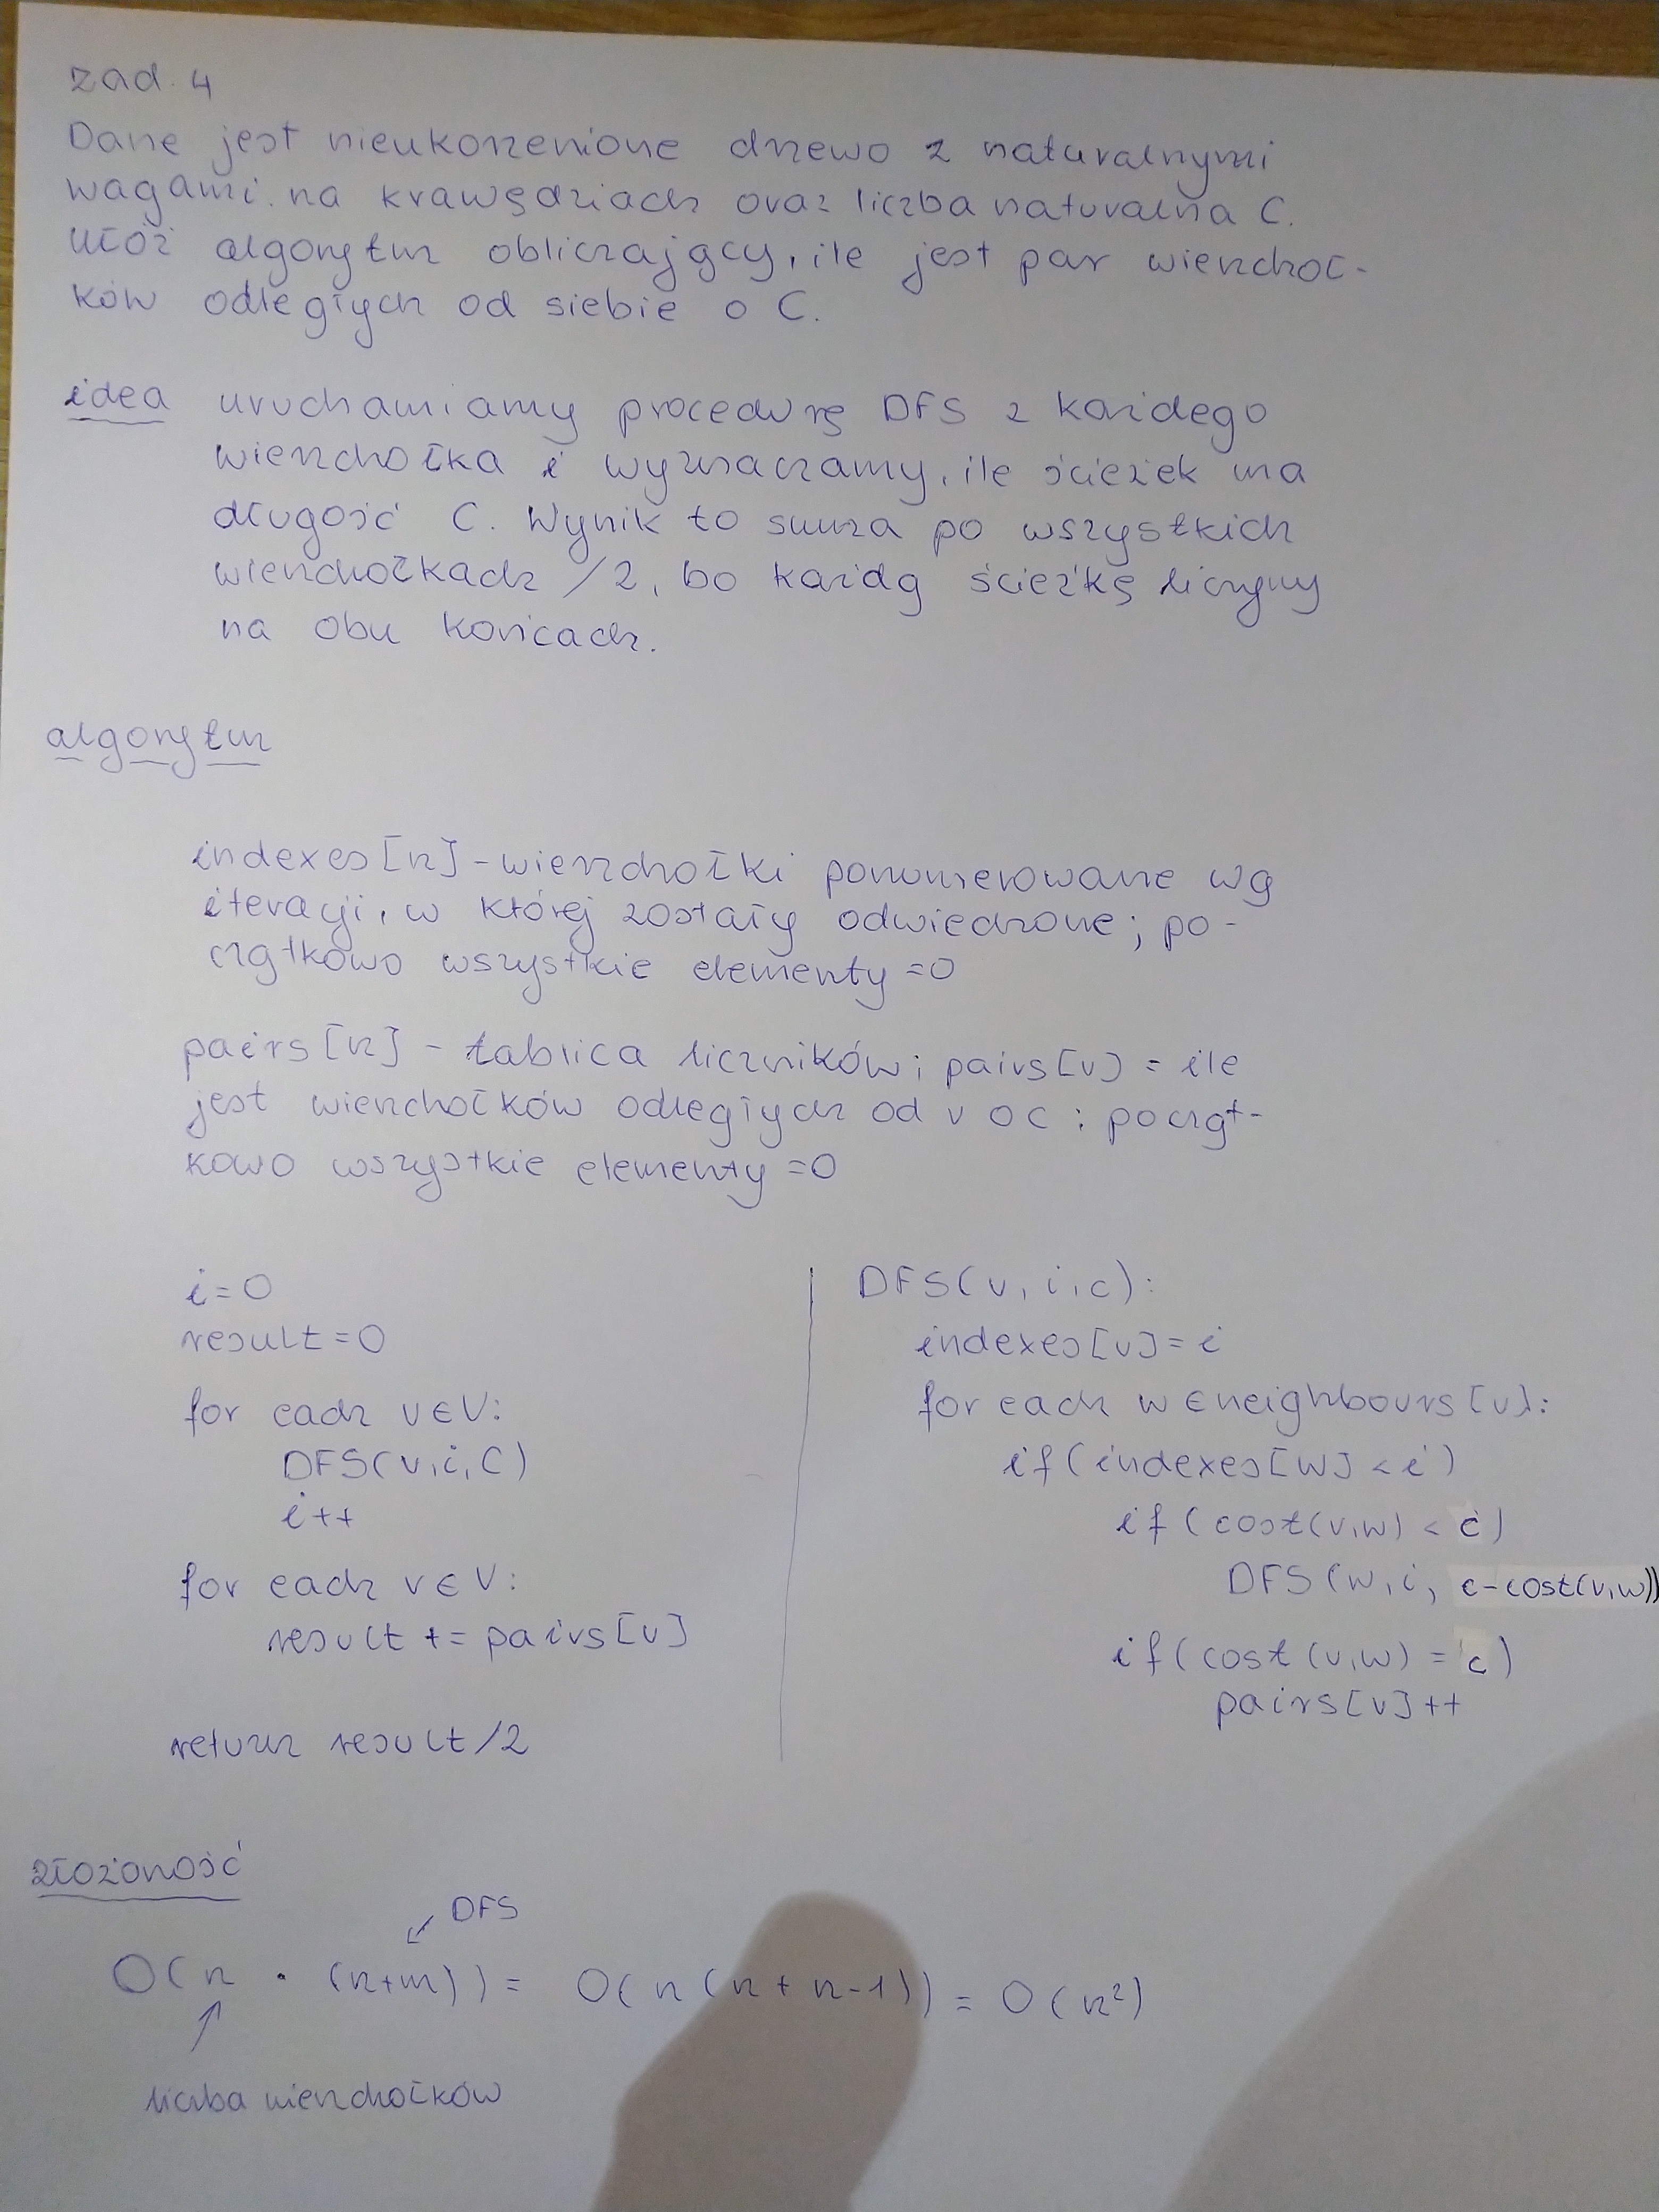 zad. 4
Dane jest nieukorzenione drzewo z naturalnymi
wagami na krawędziach oraz liczba naturalna C.
Ułóż algorytm obliczający, ile jest par wierzchoł-
ków odległych od siebie o C.
idea uruchamiamy procedurę DFS z każdego
wierzchołka i wyznaczamy, ile ścieżek ma
długość C. Wynik to suma po wszystkich
wierzchołkach /2, bo każdą ścieżkę liczymy
na obu końcach.
algorytm
indexes[n] - wierzchołki ponumerowane wg
iteracji, w której zostały odwiedzone; po-
czątkowo wszystkie elementy =0
pairs[n] - tablica liczników; pairs[v] = ile
jest wierzchołków odległych od v o C; począt-
kowo wszystkie elementy =0
i=0
result=0
for each v∈V:
DFS(v,i,C)
i++
for each v∈V:
result += pairs[v]
return result/2
DFS(v,i,c):
indexes[v]=i
for each w∈neighbours[v]:
if(indexes[w]<i)
if(cost(v,w) < c)
DFS(w,i, c-cost(v,w))
if(cost(v,w) = c)
pairs[v]++
złożoność
DFS
O(n · (n+m)) = O(n(n+n-1)) = O(n²)
liczba wierzchołków